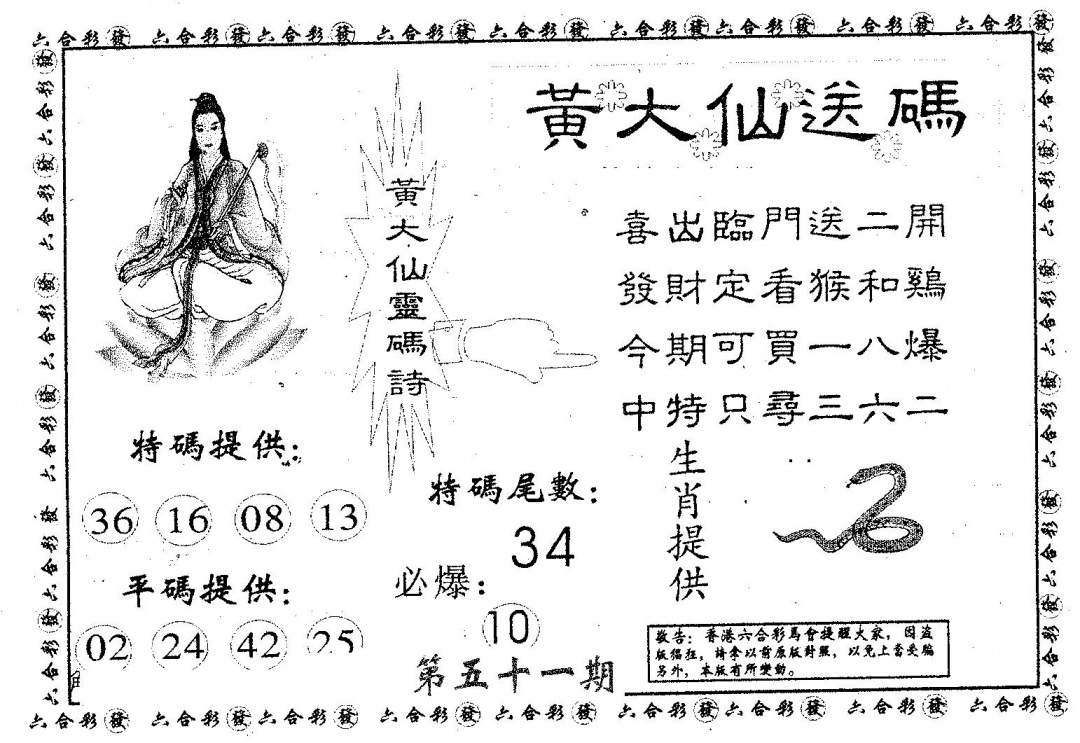 六合彩發 六合彩發 六合彩發 六合彩發 六合彩發 六合彩發 六合彩發 六合彩發 六合彩發
黃大仙送碼
黃大仙靈碼詩
喜出臨門送二開
發財定看猴和鷄
今期可買一八爆
中特只尋三六二
特碼提供:
36 16 08 13
平碼提供:
02 24 42 25
特碼尾數:
34
必爆:
10
第五十一期
生肖提供
敬告: 香港六合彩馬會提醒大家, 因盜
版猖狂, 請拿以前原版對照, 以免上當受騙
另外, 本版有所變動。
六合彩發 六合彩發 六合彩發 六合彩發 六合彩發 六合彩發 六合彩發 六合彩發 六合彩發